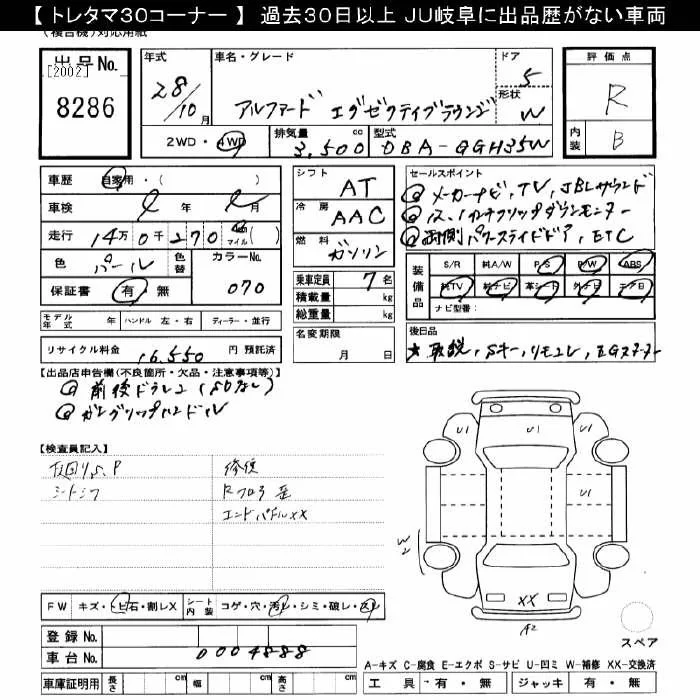 【 トレタマ30コーナー 】 過去30日以上 JU岐阜に出品歴がない車両
(複合機)対応用紙
出品No.
[2002]
8286
年式
28/10月
車名・グレード
アルファード エグゼクティブラウンジ
ドア
5
形状
W
評価点
R
内装
B
2WD・4WD
排気量
3,500 cc
型式
DBA-GGH35W
車歴 自家用・( )
車検 年 月
走行 14万0千270 km マイル( )
色 パール
色替
カラーNo.
070
保証書 有・無
モデル年式 年 ハンドル 左・右 ディーラー・並行
リサイクル料金 16,550 円 預託済
シフト AT
冷房 AAC
燃料 ガソリン
乗車定員 7 名
積載量 kg
総重量 kg
名変期限
月 日
セールスポイント
メーカーナビ,TV,JBLサウンド
両側パワースライドドア,ETC
装備品
S/R 純A/W P/S P/W ABS
純TV 純ナビ 革シート 外ナビ エアB
ナビ型番:
後日品
★取説,Sキー,リモコン
【出品店申告欄(不良箇所・欠品・注意事項等)】
前後ドラレコ(SDなし)
ガングリップハンドル
【検査員記入】
シートシワ
修復
Rフロア
エンドパネルXX
U1
U1
U1
W2
XX
A2
スペア
FW キズ・トビ石・割レX
シート内装 コゲ・穴・汚レ・シミ・破レ・スレ
登録No.
車台No. 0004888
車庫証明用 長さ cm 幅 cm 高さ cm
A-キズ C-腐食 E-エクボ S-サビ U-凹ミ W-補修 XX-交換済
工具 有・無 ジャッキ 有・無